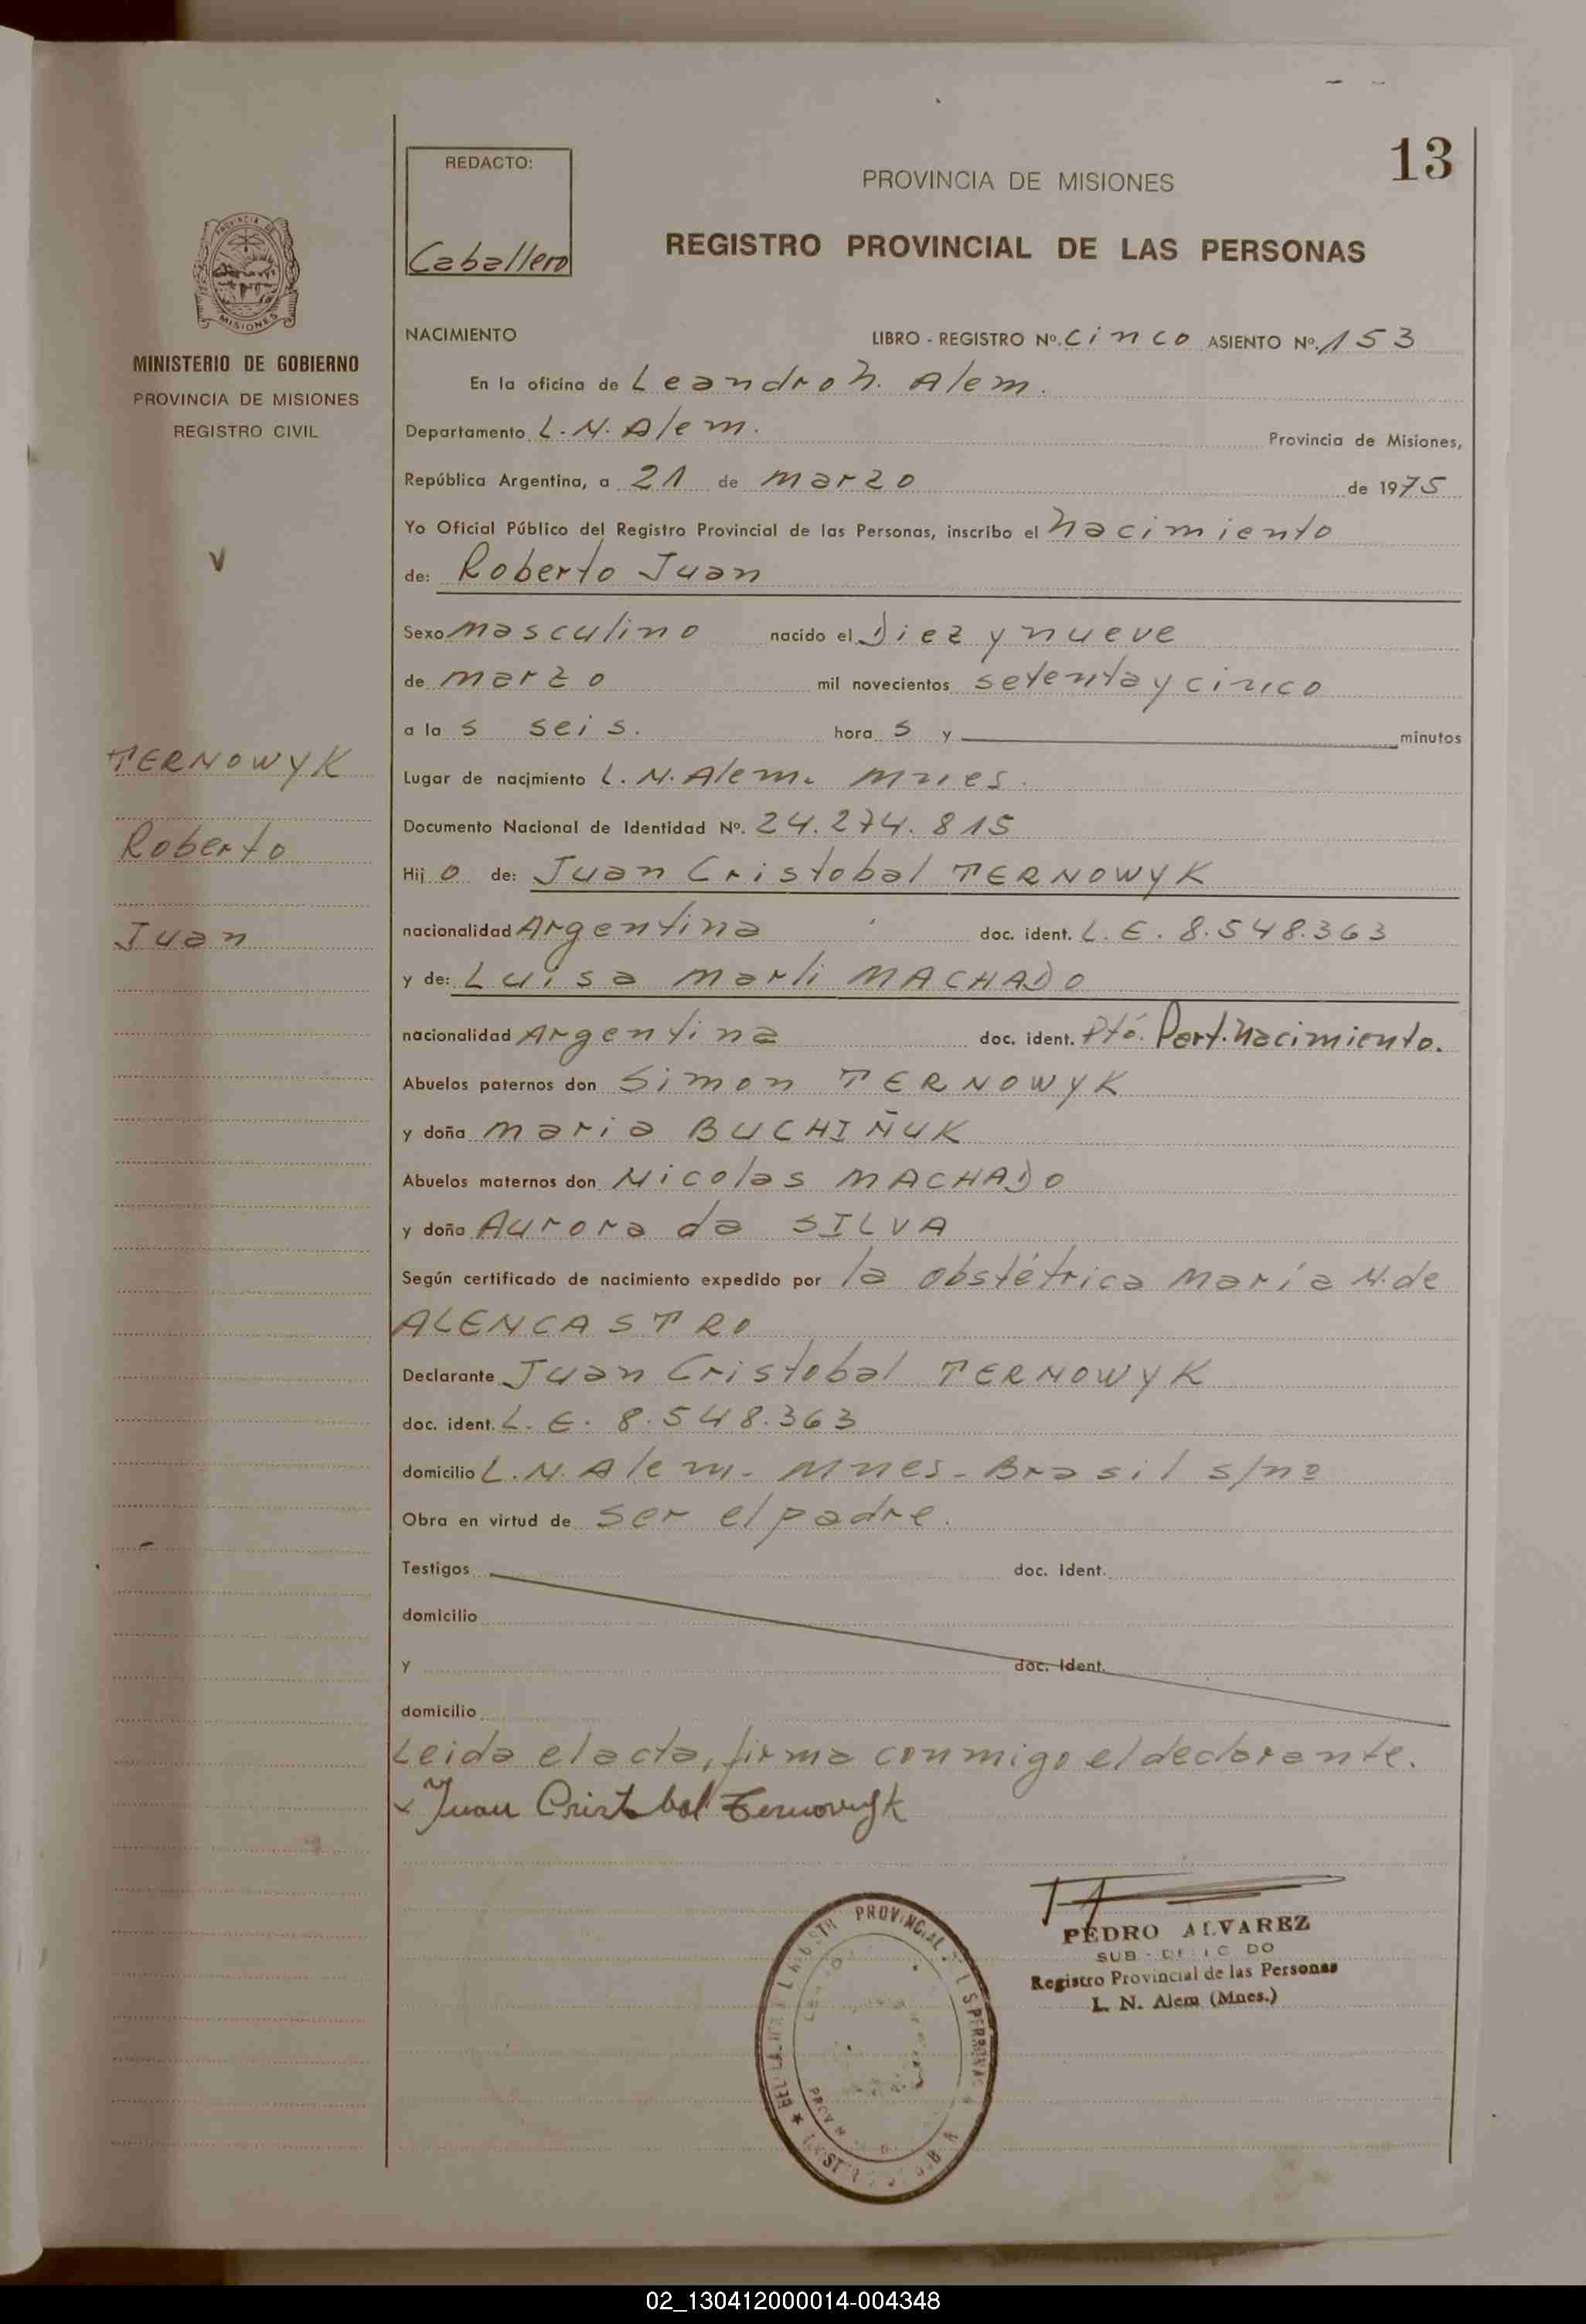 13
REDACTO:
Caballero
PROVINCIA DE MISIONES
REGISTRO PROVINCIAL DE LAS PERSONAS
PROVINCIA DE
MISIONES
MINISTERIO DE GOBIERNO
PROVINCIA DE MISIONES
REGISTRO CIVIL
V
TERNOWYK
Roberto
Juan
NACIMIENTO LIBRO - REGISTRO Nº. Cinco ASIENTO Nº. 153
En la oficina de Leandro N. Alem.
Departamento L. N. Alem. Provincia de Misiones,
República Argentina, a 21 de marzo de 1975
Yo Oficial Público del Registro Provincial de las Personas, inscribo el Nacimiento
de: Roberto Juan
Sexo masculino nacido el Diez y nueve
de marzo mil novecientos setenta y cinco
a las seis. horas y minutos
Lugar de nacimiento L. N. Alem. Mnes.
Documento Nacional de Identidad Nº. 24.274.815
Hijo de: Juan Cristobal TERNOWYK
nacionalidad Argentina doc. ident. L. E. 8.548.363
y de: Luisa Marli MACHADO
nacionalidad Argentina doc. ident. Ptó. Part. Nacimiento.
Abuelos paternos don Simon TERNOWYK
y doña Maria BUCHIÑUK
Abuelos maternos don Nicolas MACHADO
y doña Aurora da SILVA
Según certificado de nacimiento expedido por la obstétrica María N. de
ALENCASTRO
Declarante Juan Cristobal TERNOWYK
doc. ident. L. E. 8.548.363
domicilio L. N. Alem - Mnes - Brasil s/nº
Obra en virtud de ser el padre.
Testigos doc. ident.
domicilio
y doc. ident.
domicilio
Leida el acta, firma conmigo el declarante.
x Juan Cristobal Ternowyk
PEDRO ALVAREZ
SUB -
Registro Provincial de las Personas
L. N. Alem (Mnes.)
PROVINCIAL
02_130412000014-004348